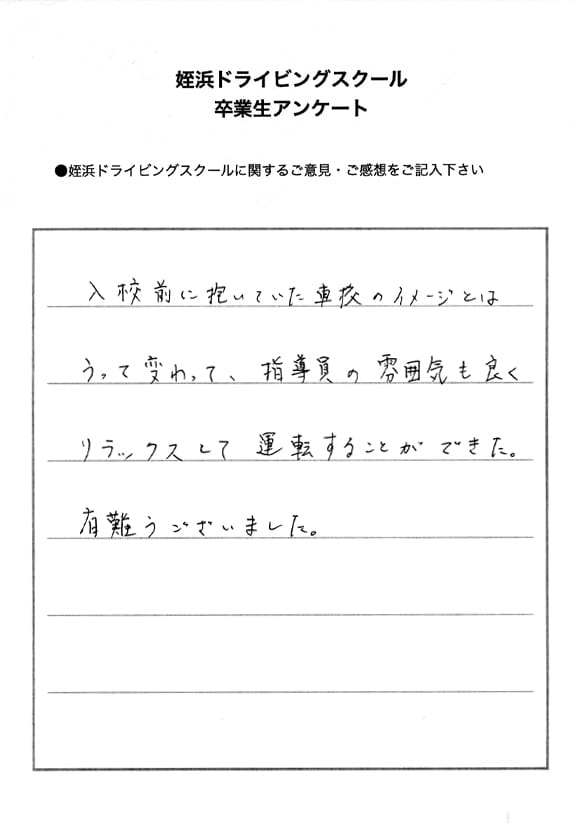 姪浜ドライビングスクール
卒業生アンケート
●姪浜ドライビングスクールに関するご意見・ご感想をご記入下さい
入校前に抱いていた車校のイメージとは
うって変わって、指導員の雰囲気も良く
リラックスして運転することができた。
有難うございました。